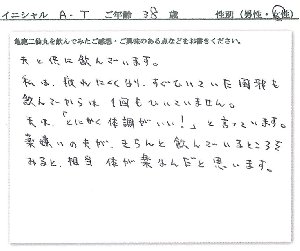 イニシャル A.T ご年齢 38 歳 性別(男性・女性)
亀鹿二仙丸を飲んでみたご感想・ご興味のある点などをお書きください。
夫と供に飲んでいます。
私は、疲れにくくなり、すぐひいていた風邪も
飲んでからは1回もひいていません。
夫は、「とにかく体調がいい!」と言っています。
薬嫌いの夫が、きちんと飲んでいるところを
みると、相当体が楽なんだと思います。